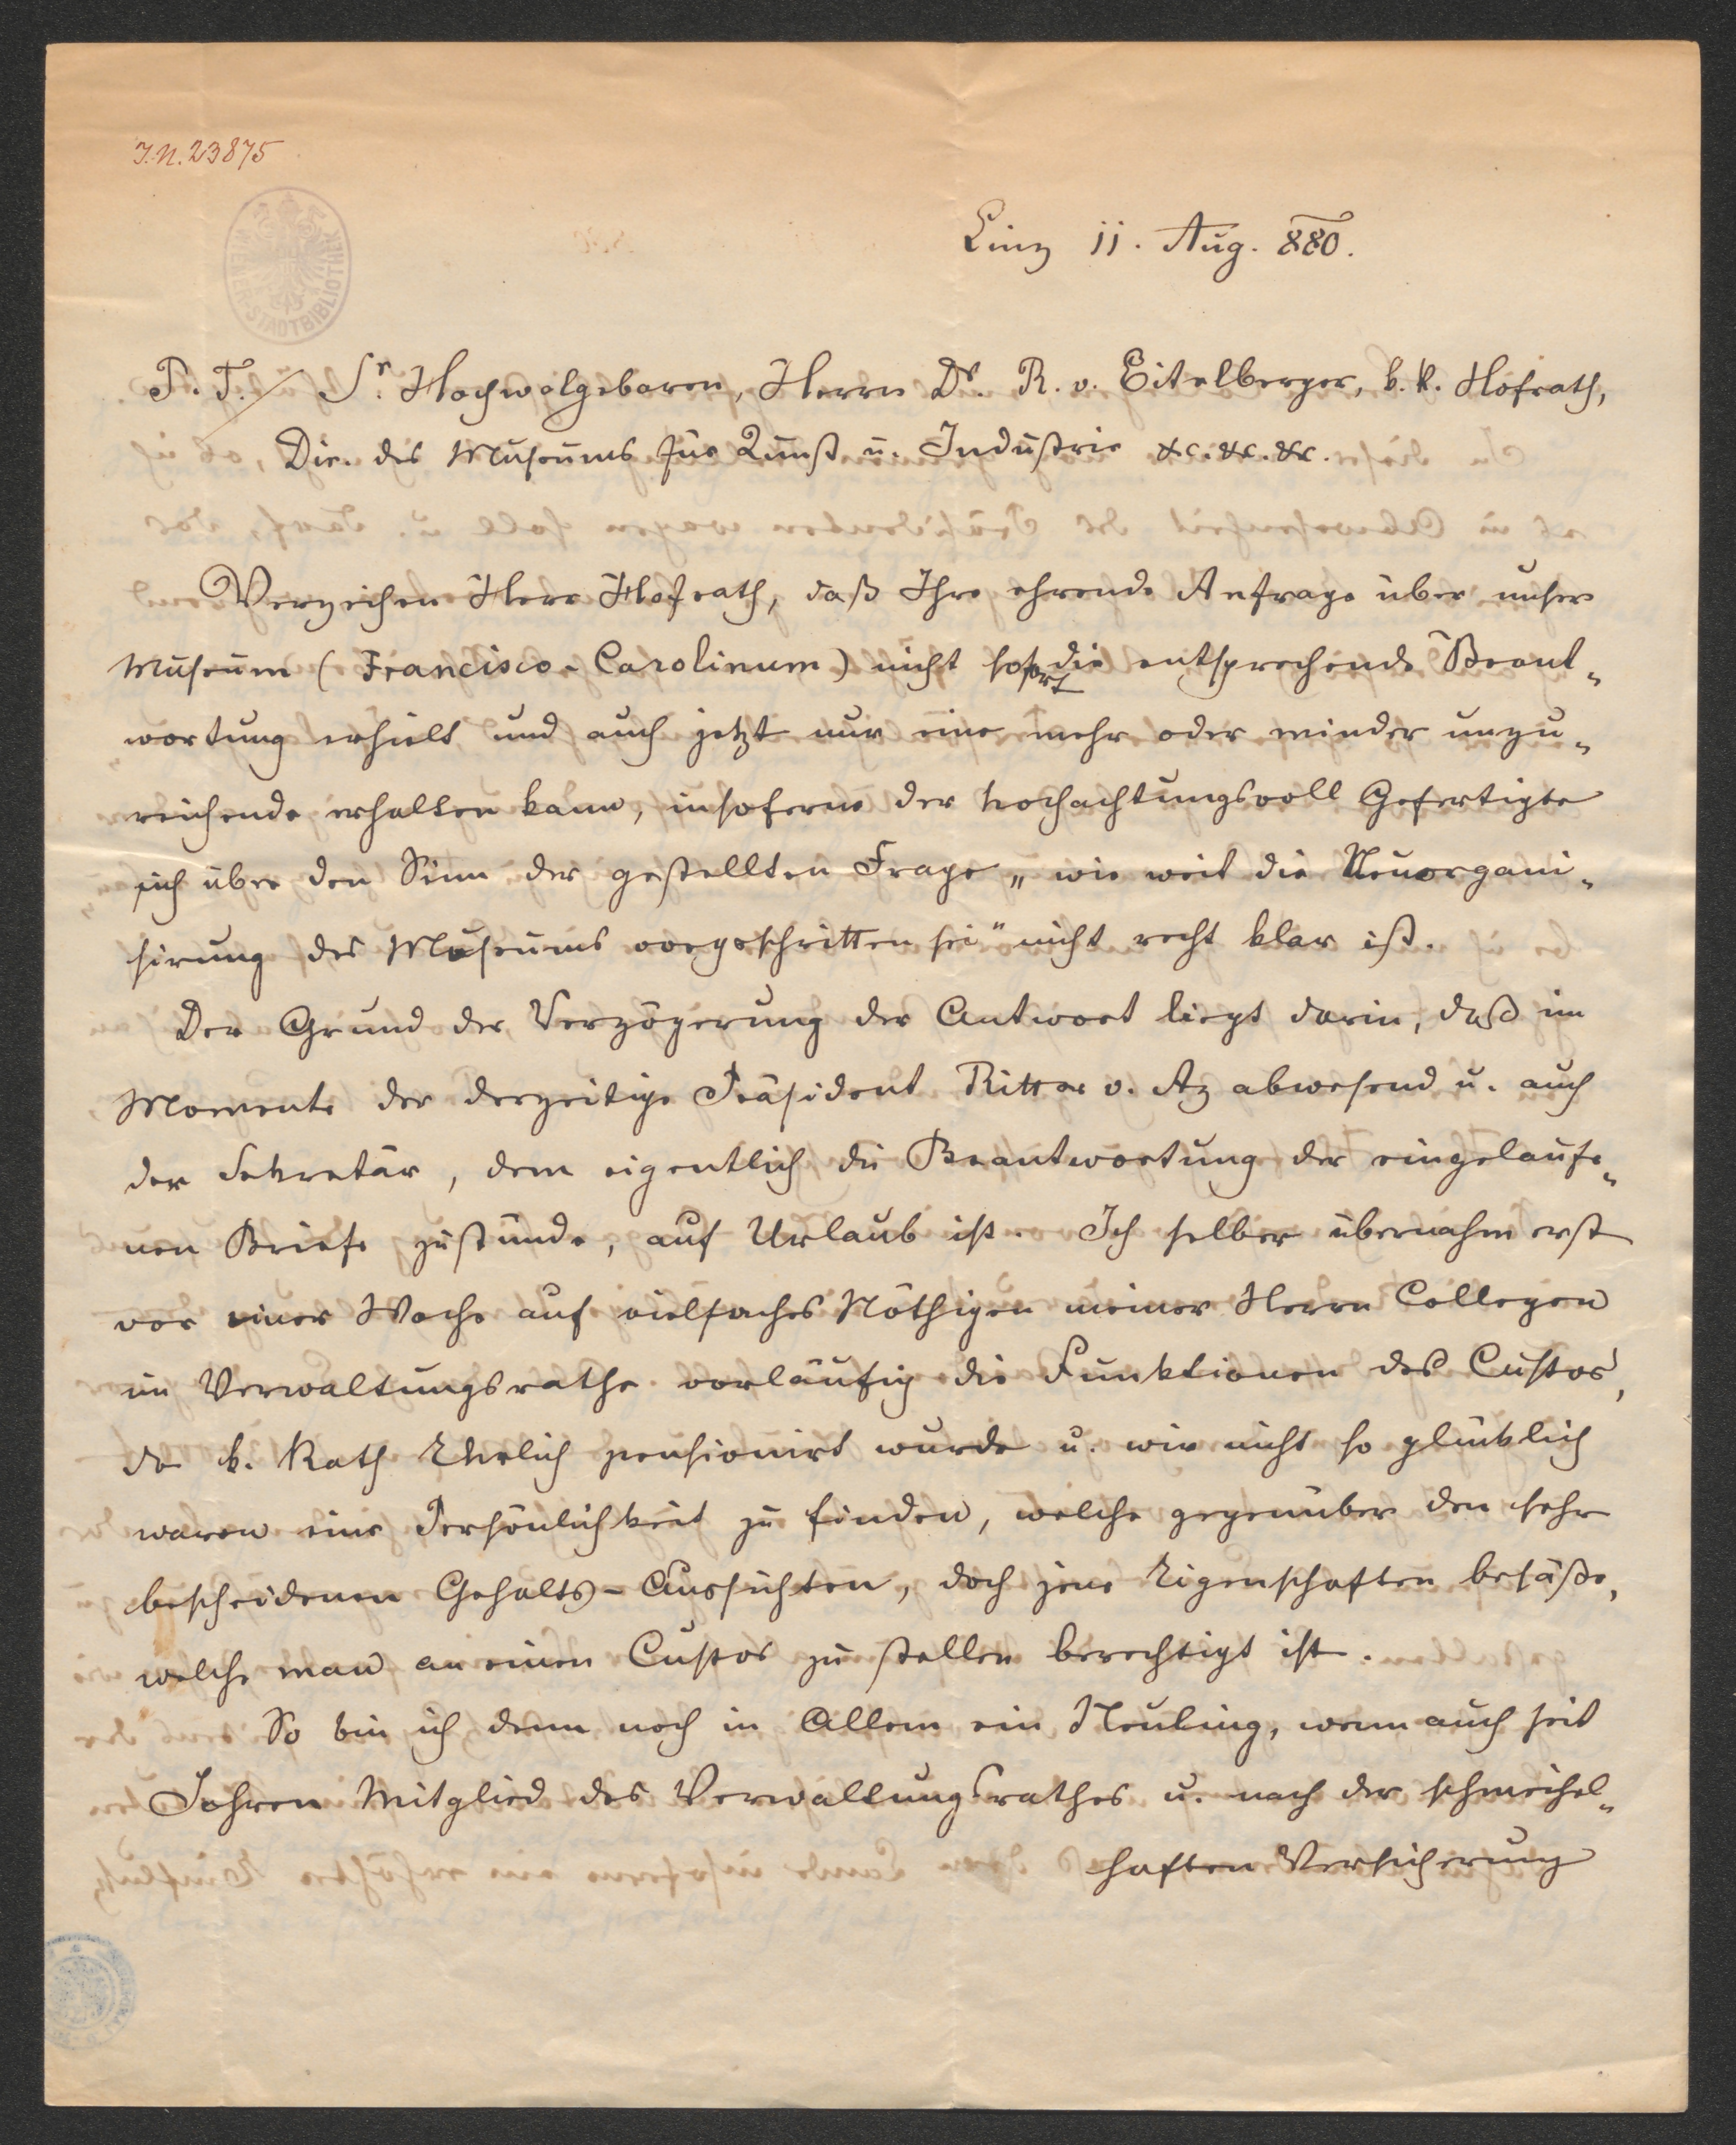 J.N. 23875
WIENER STADTBIBLIOTHEK
Linz 11. Aug. 880.
P. T. / Sr. Hochwolgeboren, Herrn Dr. R. v. Eitelberger, k. k. Hofrath,
Dir. des Museums für Kunst u. Industrie &c. &c. &c.
Verzeihen Herr Hofrath, daß Ihre ehrende Anfrage über unser
Museum (Francisco-Carolinum) nicht sofort die entsprechende Beant-
wortung erhielt und auch jetzt nur eine mehr oder minder unzu-
reichende erhalten kann, insoferne der hochachtungsvoll Gefertigte
sich über den Sinn der gestellten Frage „wie weit die Neuorgani-
sirung des Museums vorgeschritten sei" nicht recht klar ist.
Der Grund der Verzögerung der Antwort liegt darin, daß im
Momente der derzeitige Präsident Ritter v. Az abwesend u. auch
der Sekretär, dem eigentlich die Beantwortung der eingelaufe-
nen Briefe zustünde, auf Urlaub ist. Ich selber übernahm erst
vor einer Woche auf vielfaches Nöthigen meiner Herrn Collegen
im Verwaltungsrathe vorläufig die Funktionen des Custos,
da k. Rath Ehrlich pensionirt wurde u. wir nicht so glücklich
waren eine Persönlichkeit zu finden, welche gegenüber den sehr
bescheidenen Gehalts-Aussichten, doch jene Eigenschaften besäße,
welche man an einen Custos zu stellen berechtigt ist.
So bin ich denn noch in Allem ein Neuling, wenn auch seit
Jahren Mitglied des Verwaltungsrathes u. nach der schmeichel-
haften Versicherung